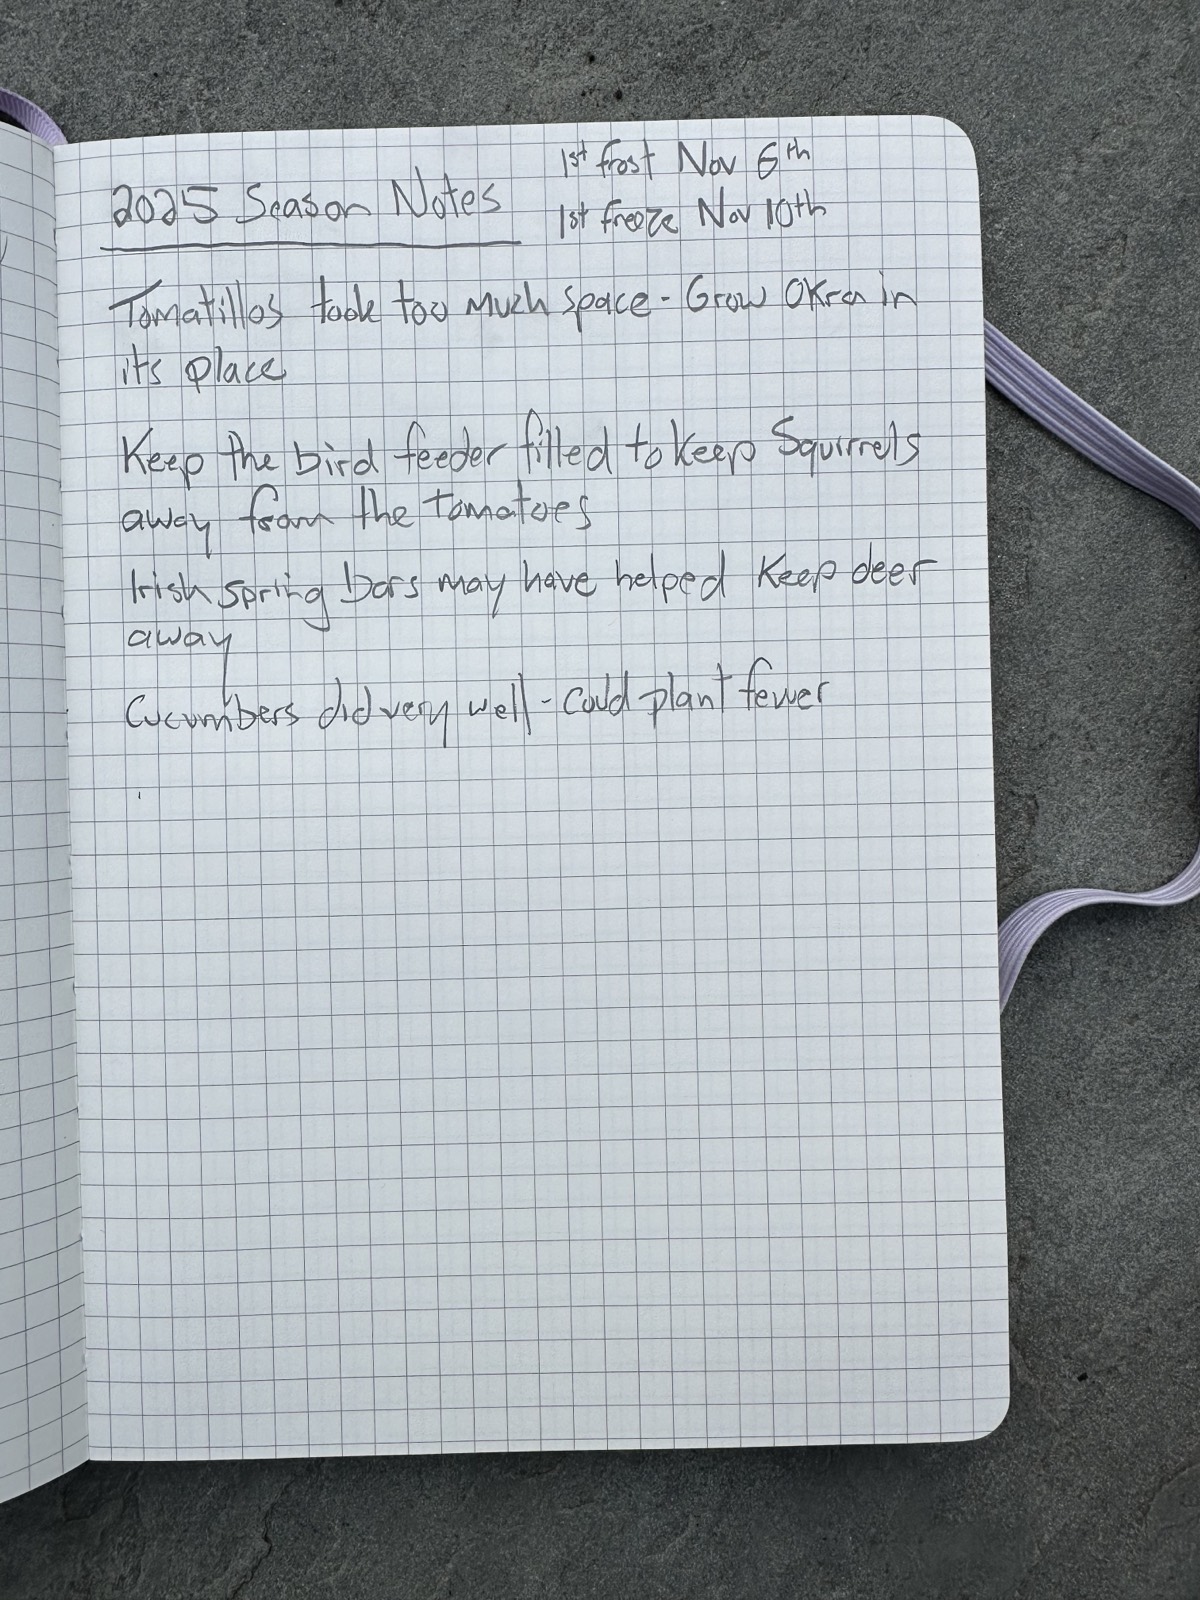 2025 Season Notes
1st frost Nov 6th
1st freeze Nov 10th
Tomatillos took too much space - Grow Okra in
its place
Keep the bird feeder filled to keep Squirrels
away from the tomatoes
Irish spring bars may have helped keep deer
away
Cucumbers did very well - could plant fewer